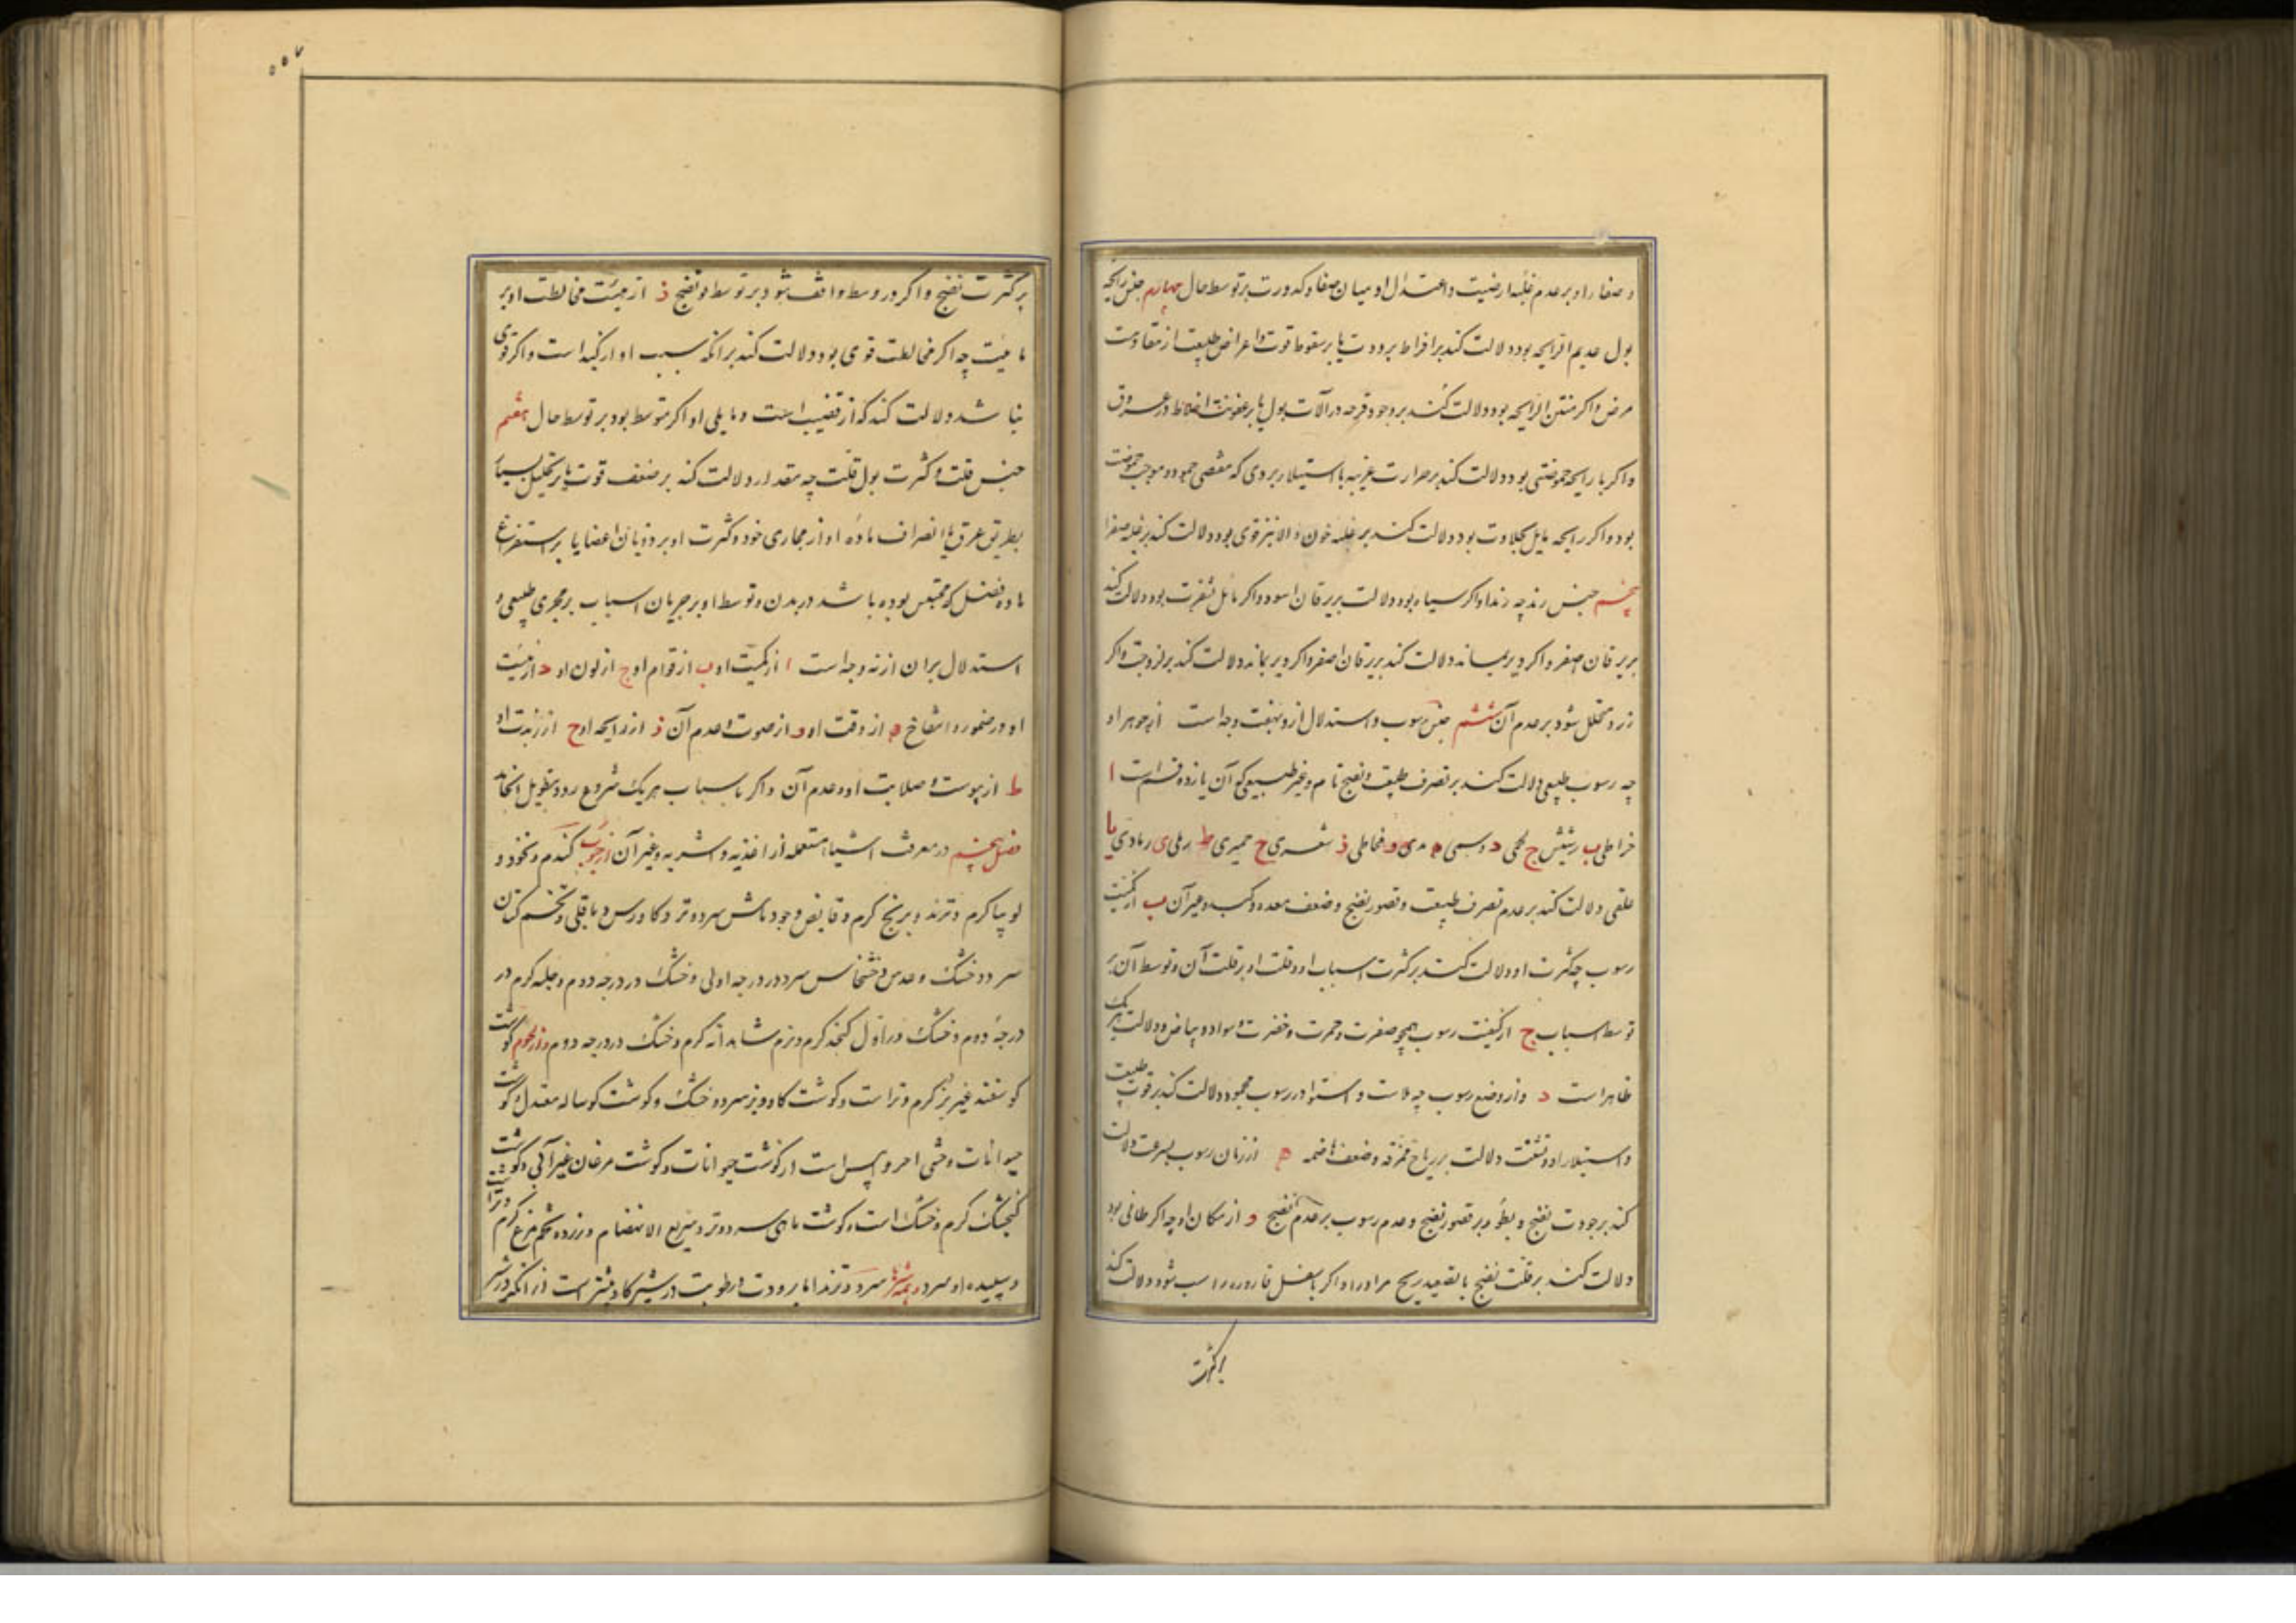 و صفاء او بر عدم غلبه ارضیت و اعتدال او میان صفا و کدورت بر توسط حال چهارم جنس رایحه
بول عدیم الرایحه بود دلالت کند بر افراط برودت یا بر سقوط قوت و اعراض طبیعت از مقاومت
مرض و اکر منتن الرایحه بود دلالت کند بر وجود قرحه در آلات بول یا بر عفونت اخلاط در عروق
و اکر با رایحه حموضتی بود دلالت کند بر حرارت غریبه با استیلاء بردی که مقتضی جمود و موجب حموضت
بود و اکر رایحه مایل بحلاوت بود دلالت کند بر غلبه خون و الا نیز قوی بود دلالت کند بر غلبه صفرا
پنجم جنس زبد چه زبد او اکر سیاه بود دلالت بر یرقان اسود و اکر مایل بشقرت بود دلالت کند
بر یرقان اصفر و اکر دیر بماند دلالت کند بر یرقان اصفر و اکر دیر بماند دلالت کند بر لزوجت و اکر
زود متحلل شود بر عدم آن ششم جنس رسوب و استدلال ازو بهفت وجه است از جوهر او
چه رسوب طبیعی دلالت کند بر تصرف طبیعت و نضج تام و غیر طبیعی که آن یازده قسم است ا
خراطی ب ریشش ج لحمی د دسمی ه مدی و مخاطی ز شعری ح خمیری ط رملی ی رمادی یا
علقی دلالت کند بر عدم تصرف طبیعت و قصور نضج و ضعف معده و کبد و غیر آن ب از کمیت
رسوب چه کثرت او دلالت کند بر کثرت اسباب او و قلت او بر قلت آن و توسط آن بر
توسط اسباب ج از کیفیت رسوب همچو صفرت و حمرت و خضرت و سواد و بیاض و دلالت هر یک
ظاهر است د و از وضع رسوب چه ملاست و استوا در رسوب محمود دلالت کند بر قوت طبیعت
و استیلاء او و تشتت دلالت بر ریاح ممزقه و ضعف هاضمه ه از زمان رسوب بسرعت دلالت
کند بر جودت نضج و بطؤ بر قصور نضج و عدم رسوب بر عدم نضج و از مکان او چه اکر طافی بود
دلالت کند بر قلت نضج یا تصعید ریح مر او را و اکر باسفل قاروره راسب شود دلالت کند
بر کثرت
بر کثرت نضج و اکر در وسط واقف شود بر توسط نضج ز از هیئت مخالطت او بر
مائیت چه اکر مخالطت قوی بود دلالت کند بر آنکه سبب او از کبد است و اکر قوی
نباشد دلالت کند که از قضیب است و مایلی او اکر متوسط بود بر توسط حال هفتم
جنس قلت و کثرت بول قلت چه مقدار دلالت کند بر ضعف قوت یا بر تحلیل بسیار
بطریق عرق یا انصراف ماده او از مجاری خود و کثرت او بر ذوبان اعضا یا بر استفراغ
ماده فضل که محتبس بوده باشد در بدن و توسط او بر جریان اسباب بر مجری طبیعی و
استدلال بران از نه وجه است ا از کمیت او ب از قوام او ج از لون او د از هیئت
او در ضمور و انتفاخ ه از وقت او و از صوت و عدم آن ز از رایحه او ح از زبدیت او
ط از یبوست و صلابت او و عدم آن و اکر باسباب هریک شروع رود بتطویل انجامد
فصل پنجم در معرفت اشیاء مستعمله از اغذیه و اشربه و غیر آن از حبوب کندم و نخود و
لوبیا کرم و ترند و برنج کرم و قابض و جو و ماش سرد و تر و کاورس و باقلی و تخم کتان
سرد و خشک و عدس و خشخاش سرد در درجه اولی و خشک در درجه دوم و حلبه کرم در
درجه دوم و خشک در اول کنجد کرم و نرم شاهدانه کرم و خشک در درجه دوم و از لحوم کوشت
کوسفند غیر بز کرم و تر است و کوشت کاو و بز سرد و خشک و کوشت کوساله معتدل و کوشت
حیوانات وحشی احر و ایبس است از کوشت حیوانات و کوشت مرغان غیر آبی و کوشت
کنجشک کرم و خشک است و کوشت ماهی سرد و تر و سریع الانهضام و زرده تخم مرغ کرم و تر
و سپیده او سرد و همه شیرها سرد و ترند اما برودت و رطوبت در شیر کاو بیشتر است از آنکه در شیر